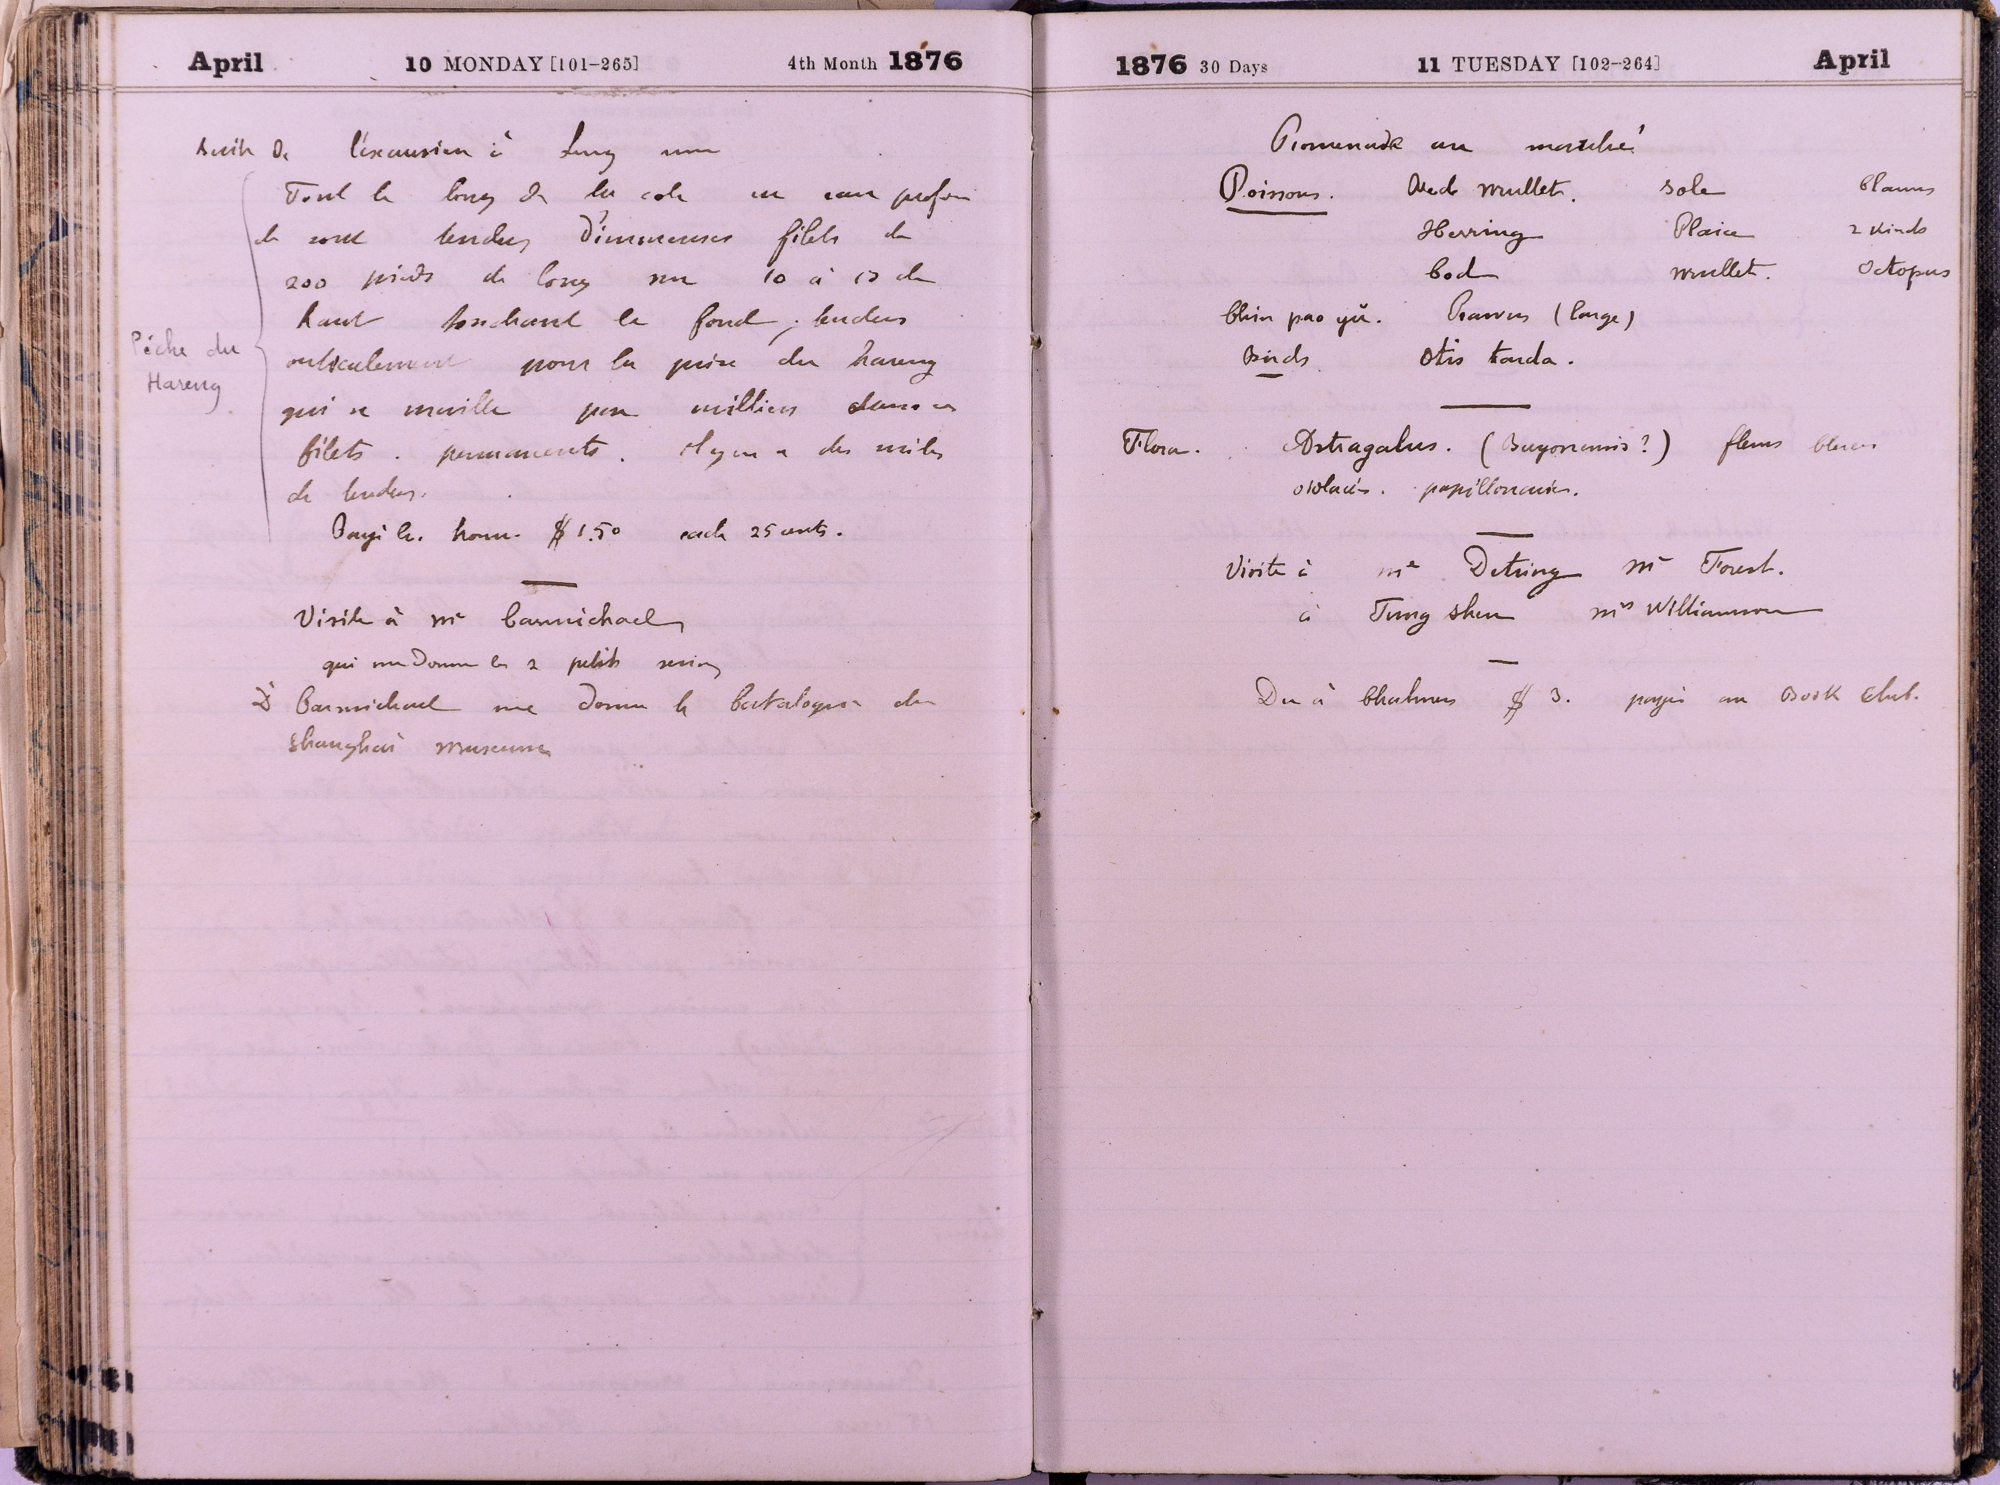 April 10 MONDAY [101-265] 4th Month 1876
Suite de l'excursion à Lung
Tout le long de la cote en eau profon
de sont tendus d'immenses filets de
200 pieds de long sur 10 à 12 de
haut touchant le fond, tendus
verticalement pour la prise du hareng
qui se maille par milliers dans ces
filets. permanents. Il y en a des milles
de tendus.
Pêche du
Hareng
Payé le. hom. $ 1.50 each 25 cents.
Visite à Mr Carmichael
qui me donne les 2 petits serins
Dr Carmichael me donne le Catalogue du
Shanghai Museum
1876 30 Days 11 TUESDAY [102-264] April
Promenade au marché
Poissons. Red mullet. Sole Clams
Herring Plaice 2 kinds
Cod mullet. Octopus
Chin pao yü. Prawns (large)
Birds Otis tarda.
Flora. Astragalus. ( ?) fleurs bleues
violacés. papillonacées.
Visite à Mr Detring Mr Forest.
à Tung Shen Mrs Williamson
Du à Chalmers $ 3. payés au Book Club.